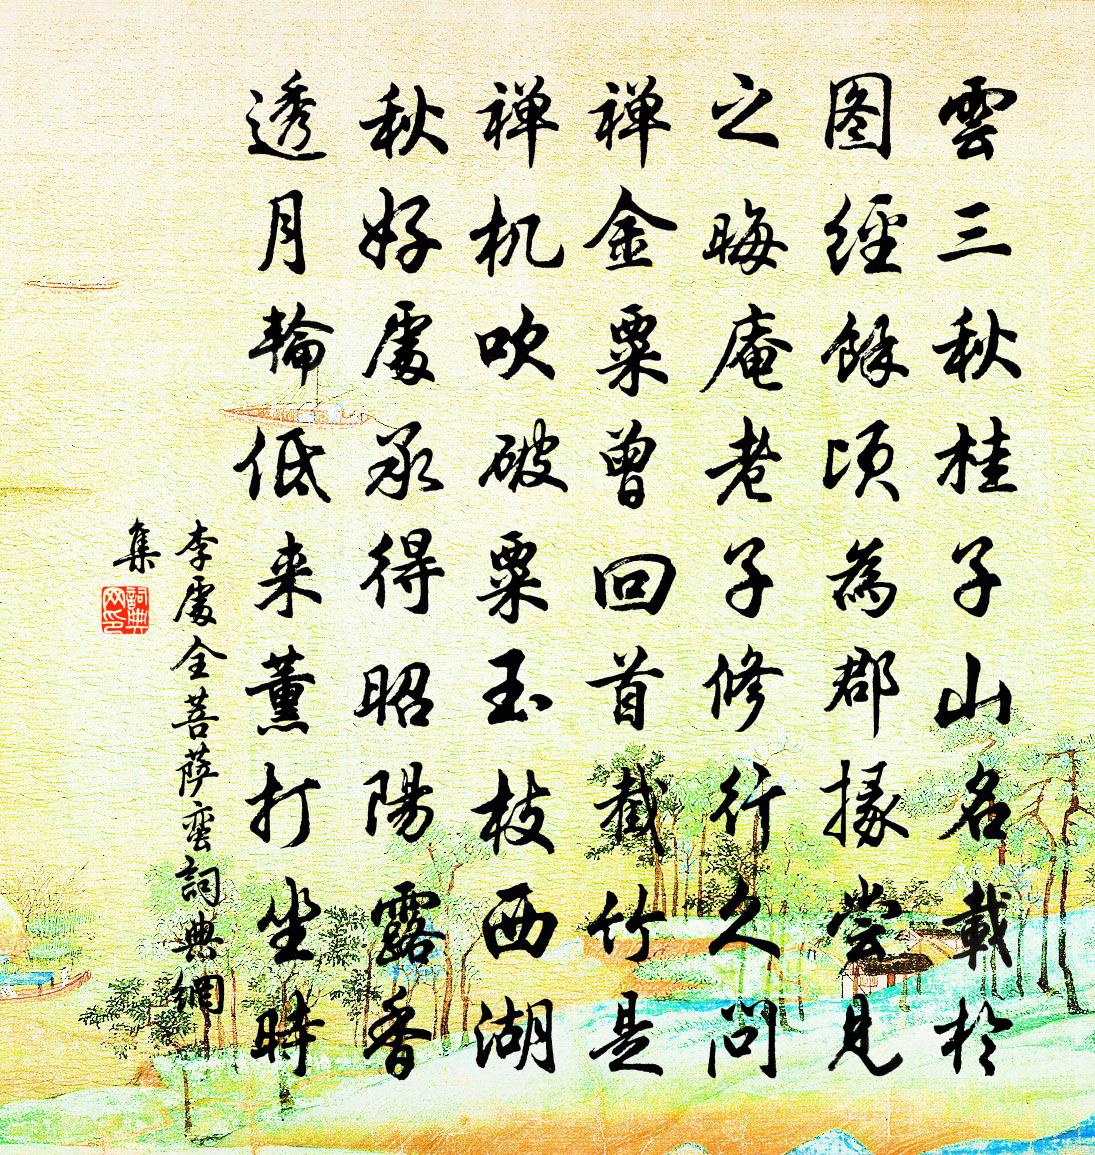 雲三秋桂子山名載於
图經餘頃為郡掾嘗見
之晦庵老子修行久問
禅金粟曾回首截竹是
禅机吹破粟玉枝西湖
秋好處承得昭陽露香
透月輪低来薰打坐時
李處全菩萨蛮詞典網
集
詞典
网印